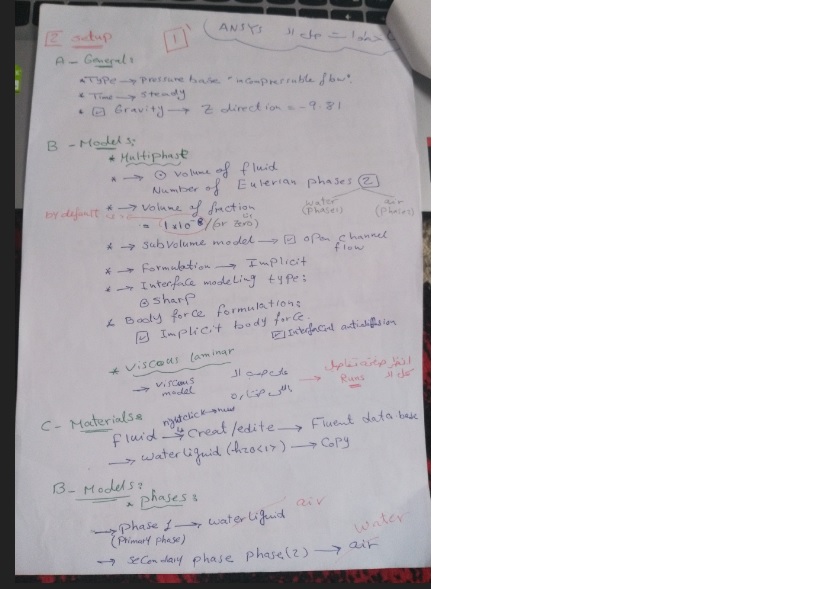 2 setup
1
ANSYS خطوات حل الـ
A - General:
* Type → pressure base "incompressable flow".
* Time → steady
* ☑ Gravity → Z direction = -9.81
B - Models:
* Multiphase
* → ⊙ volume of fluid
Number of Eulerian phases (2)
water (phases)
air (phases)
by default
* → volume of fraction
= 1x10⁻⁸ / (or zero)
* → subvolume model → ☑ open channel flow
* → Formulation → Implicit
* → Interface modeling type:
⊙ sharp
* Body force formulation:
☑ Implicit body force.
☑ Interfacial antidiffusion
* Viscous laminar
→ viscous model
→ Runs
C - Materials:
right click
Fluid → Creat/edite → Fluent data base
→ water liquid (h2o<l>) → Copy
B - Models:
* phases:
→ phase 1 → water liquid
air
(Primary phase)
→ secondary phase phase(2) → air
water